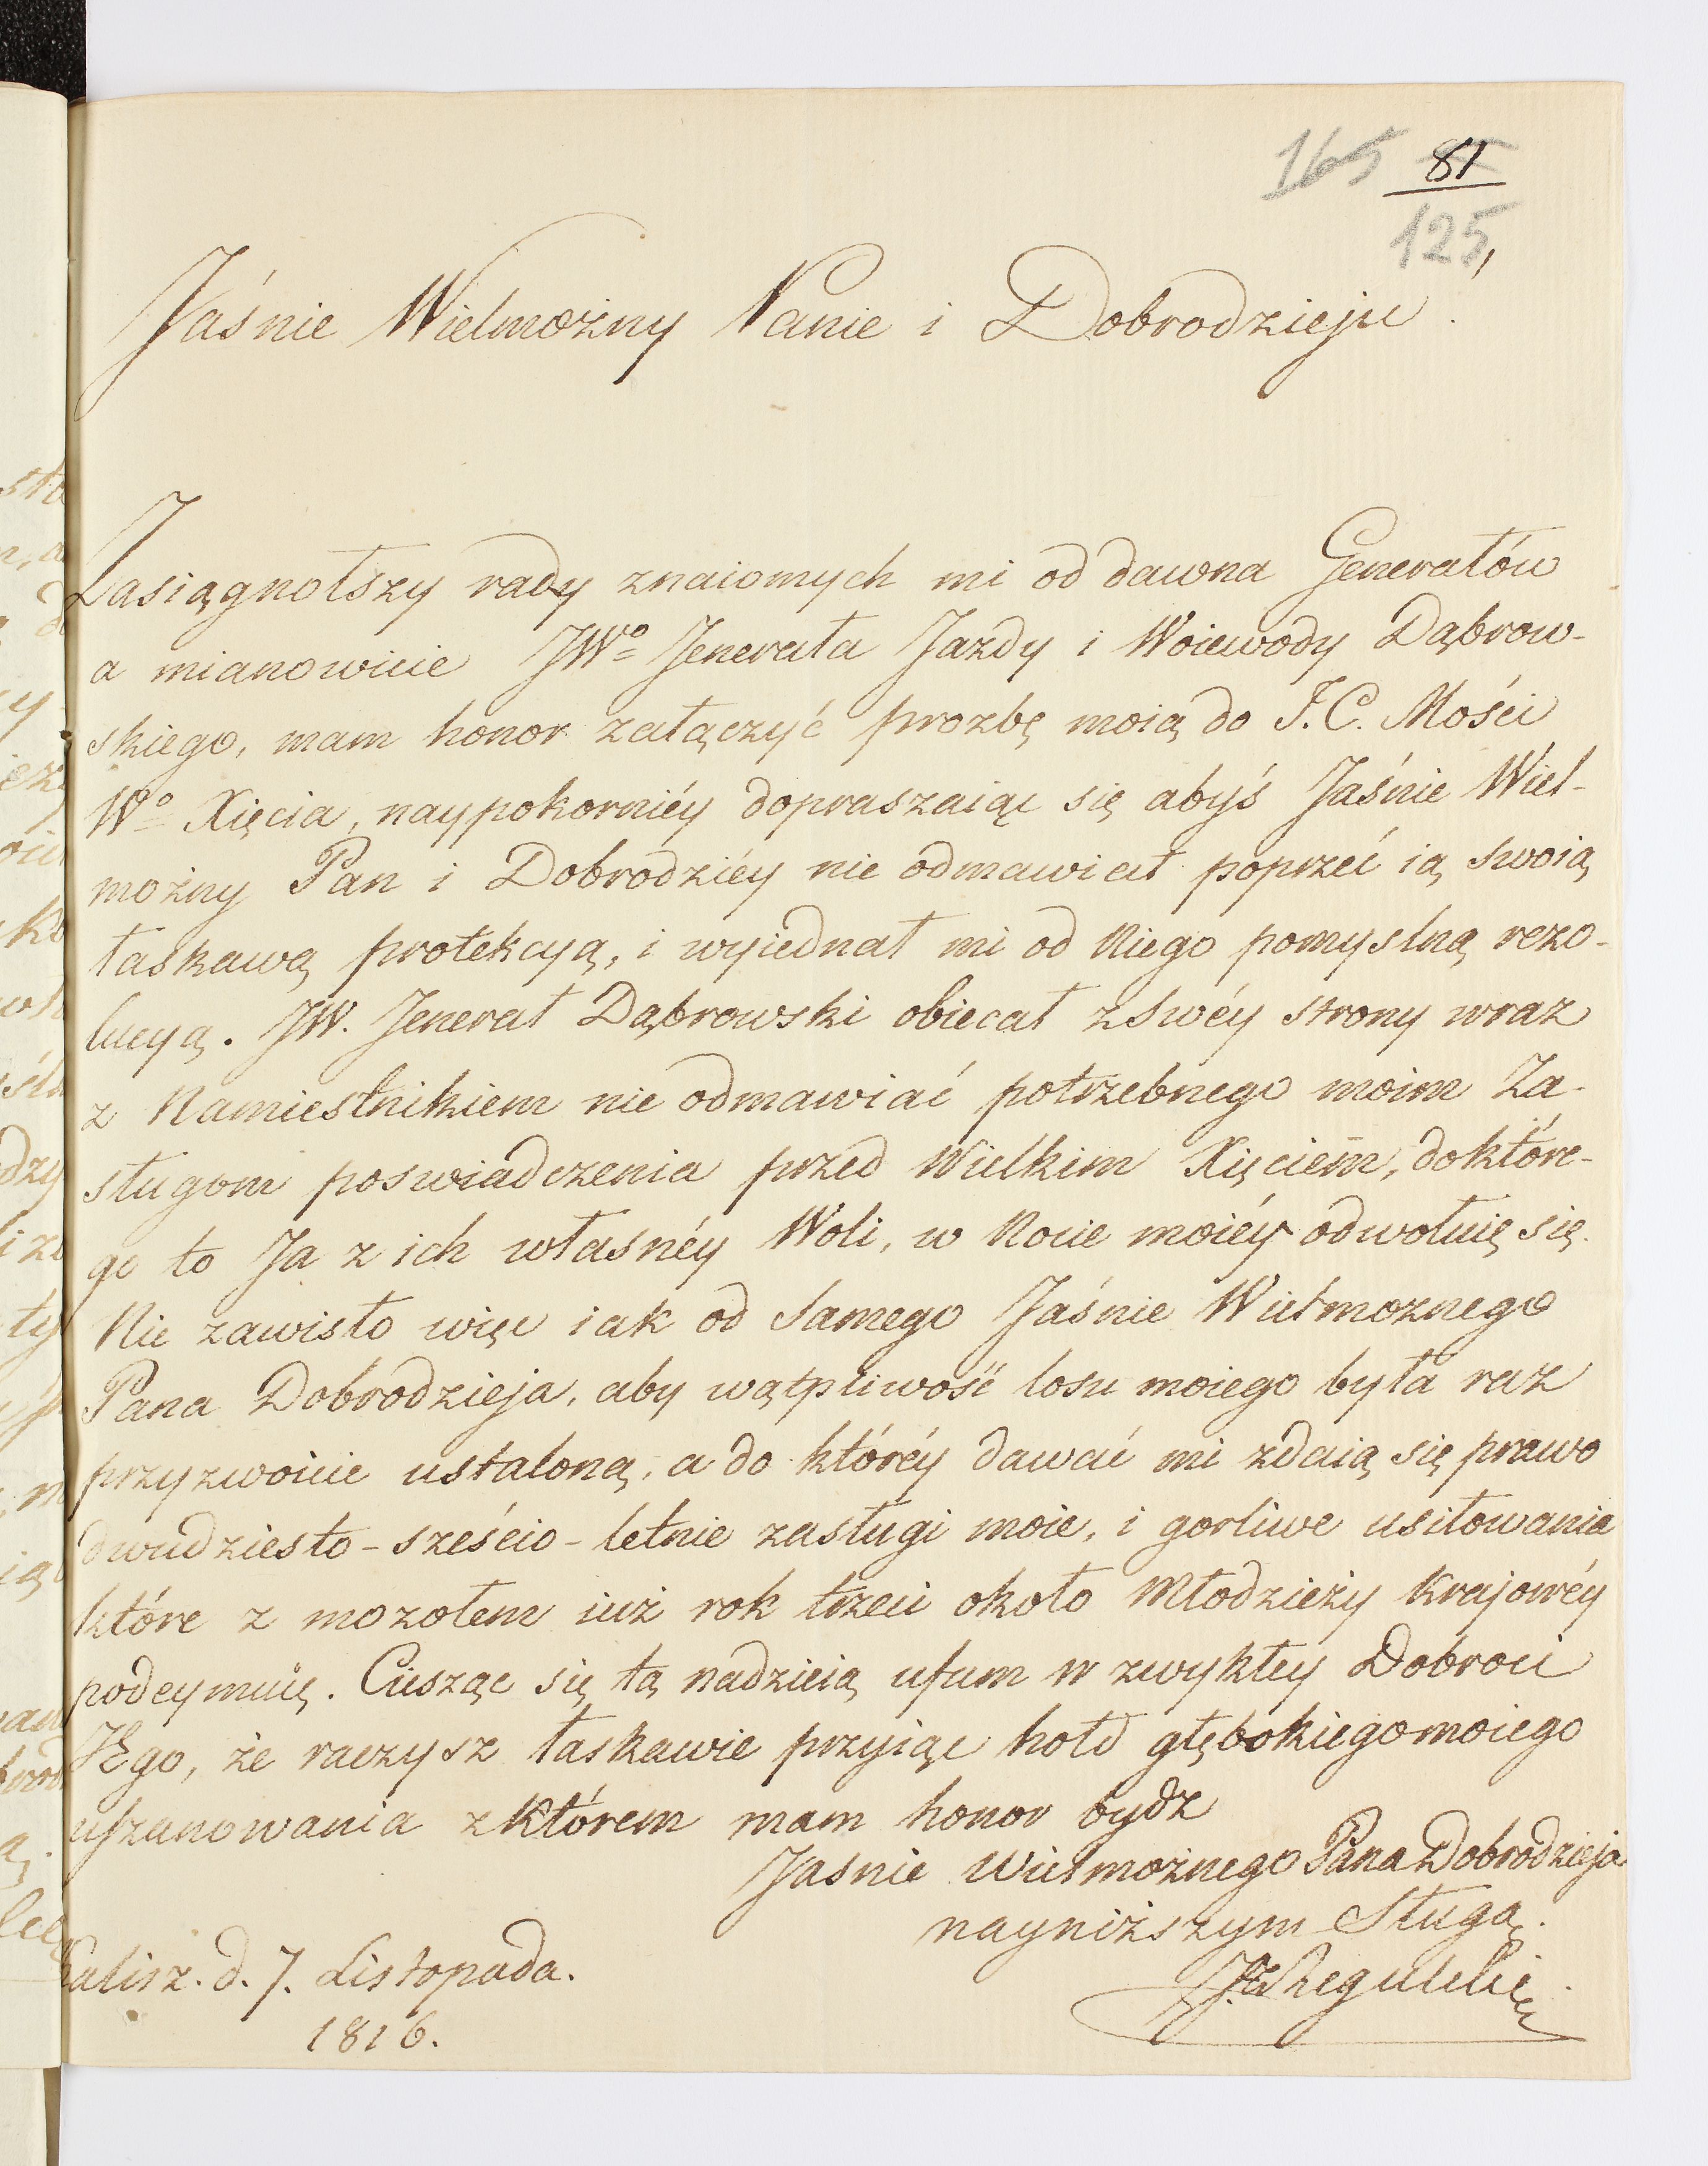 165 81
125
Jaśnie Wielmożny Panie i Dobrodzieju!
Zasiągnołszy rady znaiomych mi od dawna Generałów
a mianowicie JWº Jenerała Jazdy i Woiewody Dąbrow-
skiego, mam honor załączyć prozbę moią do J. C. Mości
Wº Xięcia, naypokorniéy dopraszaiąc się abyś Jaśnie Wiel-
możny Pan i Dobrodziéy nie odmawiał poprzeć ią swoią
łaskawą protekcyą, i wyiednał mi od Niego pomyslną rezo-
lucyą. JW. Jenerał Dąbrowski obiecał zswéy strony wraz
z Namiestnikiem nie odmawiać potrzebnego moim Za-
sługom poswiadczenia przed Wielkim Xięciem, doktóre-
go to Ja z ich własnéy Woli, w Nocie moiéy odwołuię się.
Nie zawisło więc iak od Samego Jaśnie Wielmoznego
Pana Dobrodzieja, aby wątpliwość losu moiego była raz
przyzwoicie ustaloną, a do któréy dawać mi zdaią się prawo
dwudziesto-sześcio-letnie zasługi moie, i gorliwe usiłowania
które z mozołem iuż rok trzeci około Młodzieży Krajowéy
podeymuię. Ciesząc się tą nadzieią ufam w zwykłey Dobroci
JEgo, że raczysz łaskawie przyiąc hołd głębokiego moiego
uszanowania z którem mam honor bydz
Jasnie Wielmożnego Pana Dobrodzieja
nayniższym Sługą.
Kalisz. d. 7. Listopada.
1816.